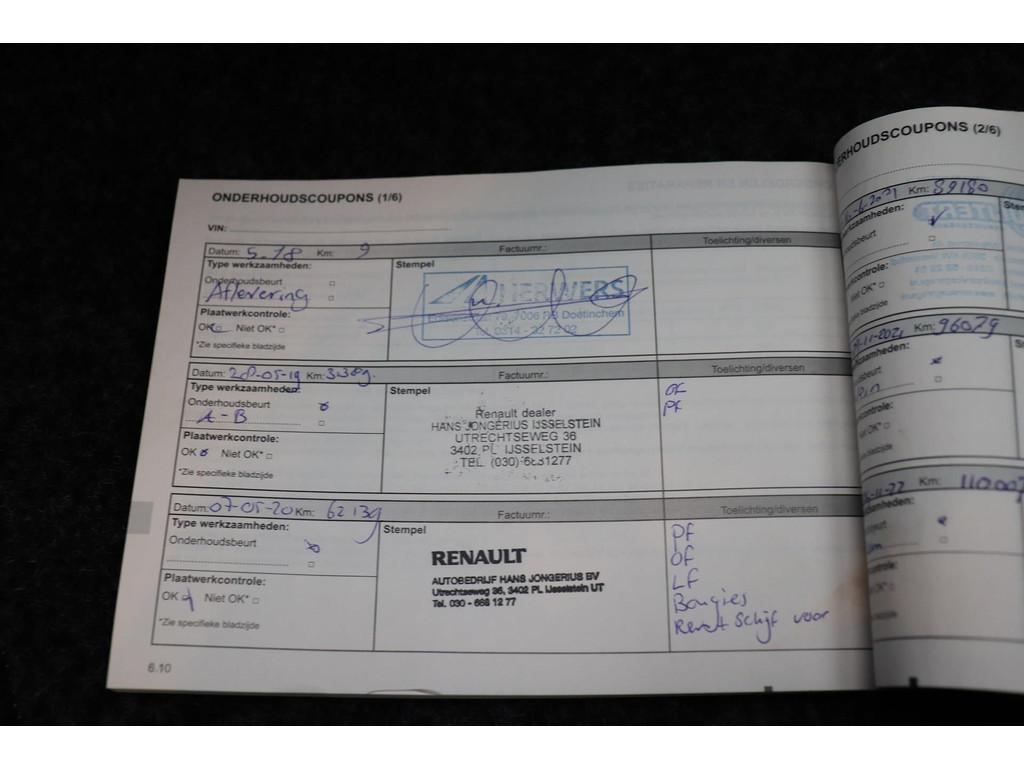 ONDERHOUDSCOUPONS (1/6)
VIN:
Datum: 5-18 Km: 9 Factuurnr.: Toelichting/diversen
Type werkzaamheden:
Stempel
Onderhoudsbeurt
Aflevering
HERWERS
79, 7006 RB Doetinchem
Tel. 0314 - 22 72 02
Plaatwerkcontrole:
OK Niet OK*
*Zie specifieke bladzijde
Datum: 28-05-19 Km: Factuurnr.: Toelichting/diversen
Type werkzaamheden:
Stempel
Onderhoudsbeurt
A-B
OF
PF
Renault dealer
HANS JONGERIUS IJSSELSTEIN
UTRECHTSEWEG 36
3402 PL IJSSELSTEIN
TEL. (030) 6881277
Plaatwerkcontrole:
OK Niet OK*
*Zie specifieke bladzijde
Datum: 07-05-20 Km: 62139 Factuurnr.: Toelichting/diversen
Type werkzaamheden:
Stempel
Onderhoudsbeurt
RENAULT
AUTOBEDRIJF HANS JONGERIUS BV
Utrechtseweg 36, 3402 PL IJsselstein UT
Tel. 030 - 688 12 77
PF
OF
LF
Bougies
Remschijf voor
Plaatwerkcontrole:
OK Niet OK*
*Zie specifieke bladzijde
6.10
ERHOUDSCOUPONS (2/6)
Km: 89180
kzaamheden:
dsbeurt
kcontrole:
Niet OK*
bladzijde
11-2021 Km: 96079
kzaamheden:
beurt
controle:
OK*
bladzijde
11-22 Km: 110007